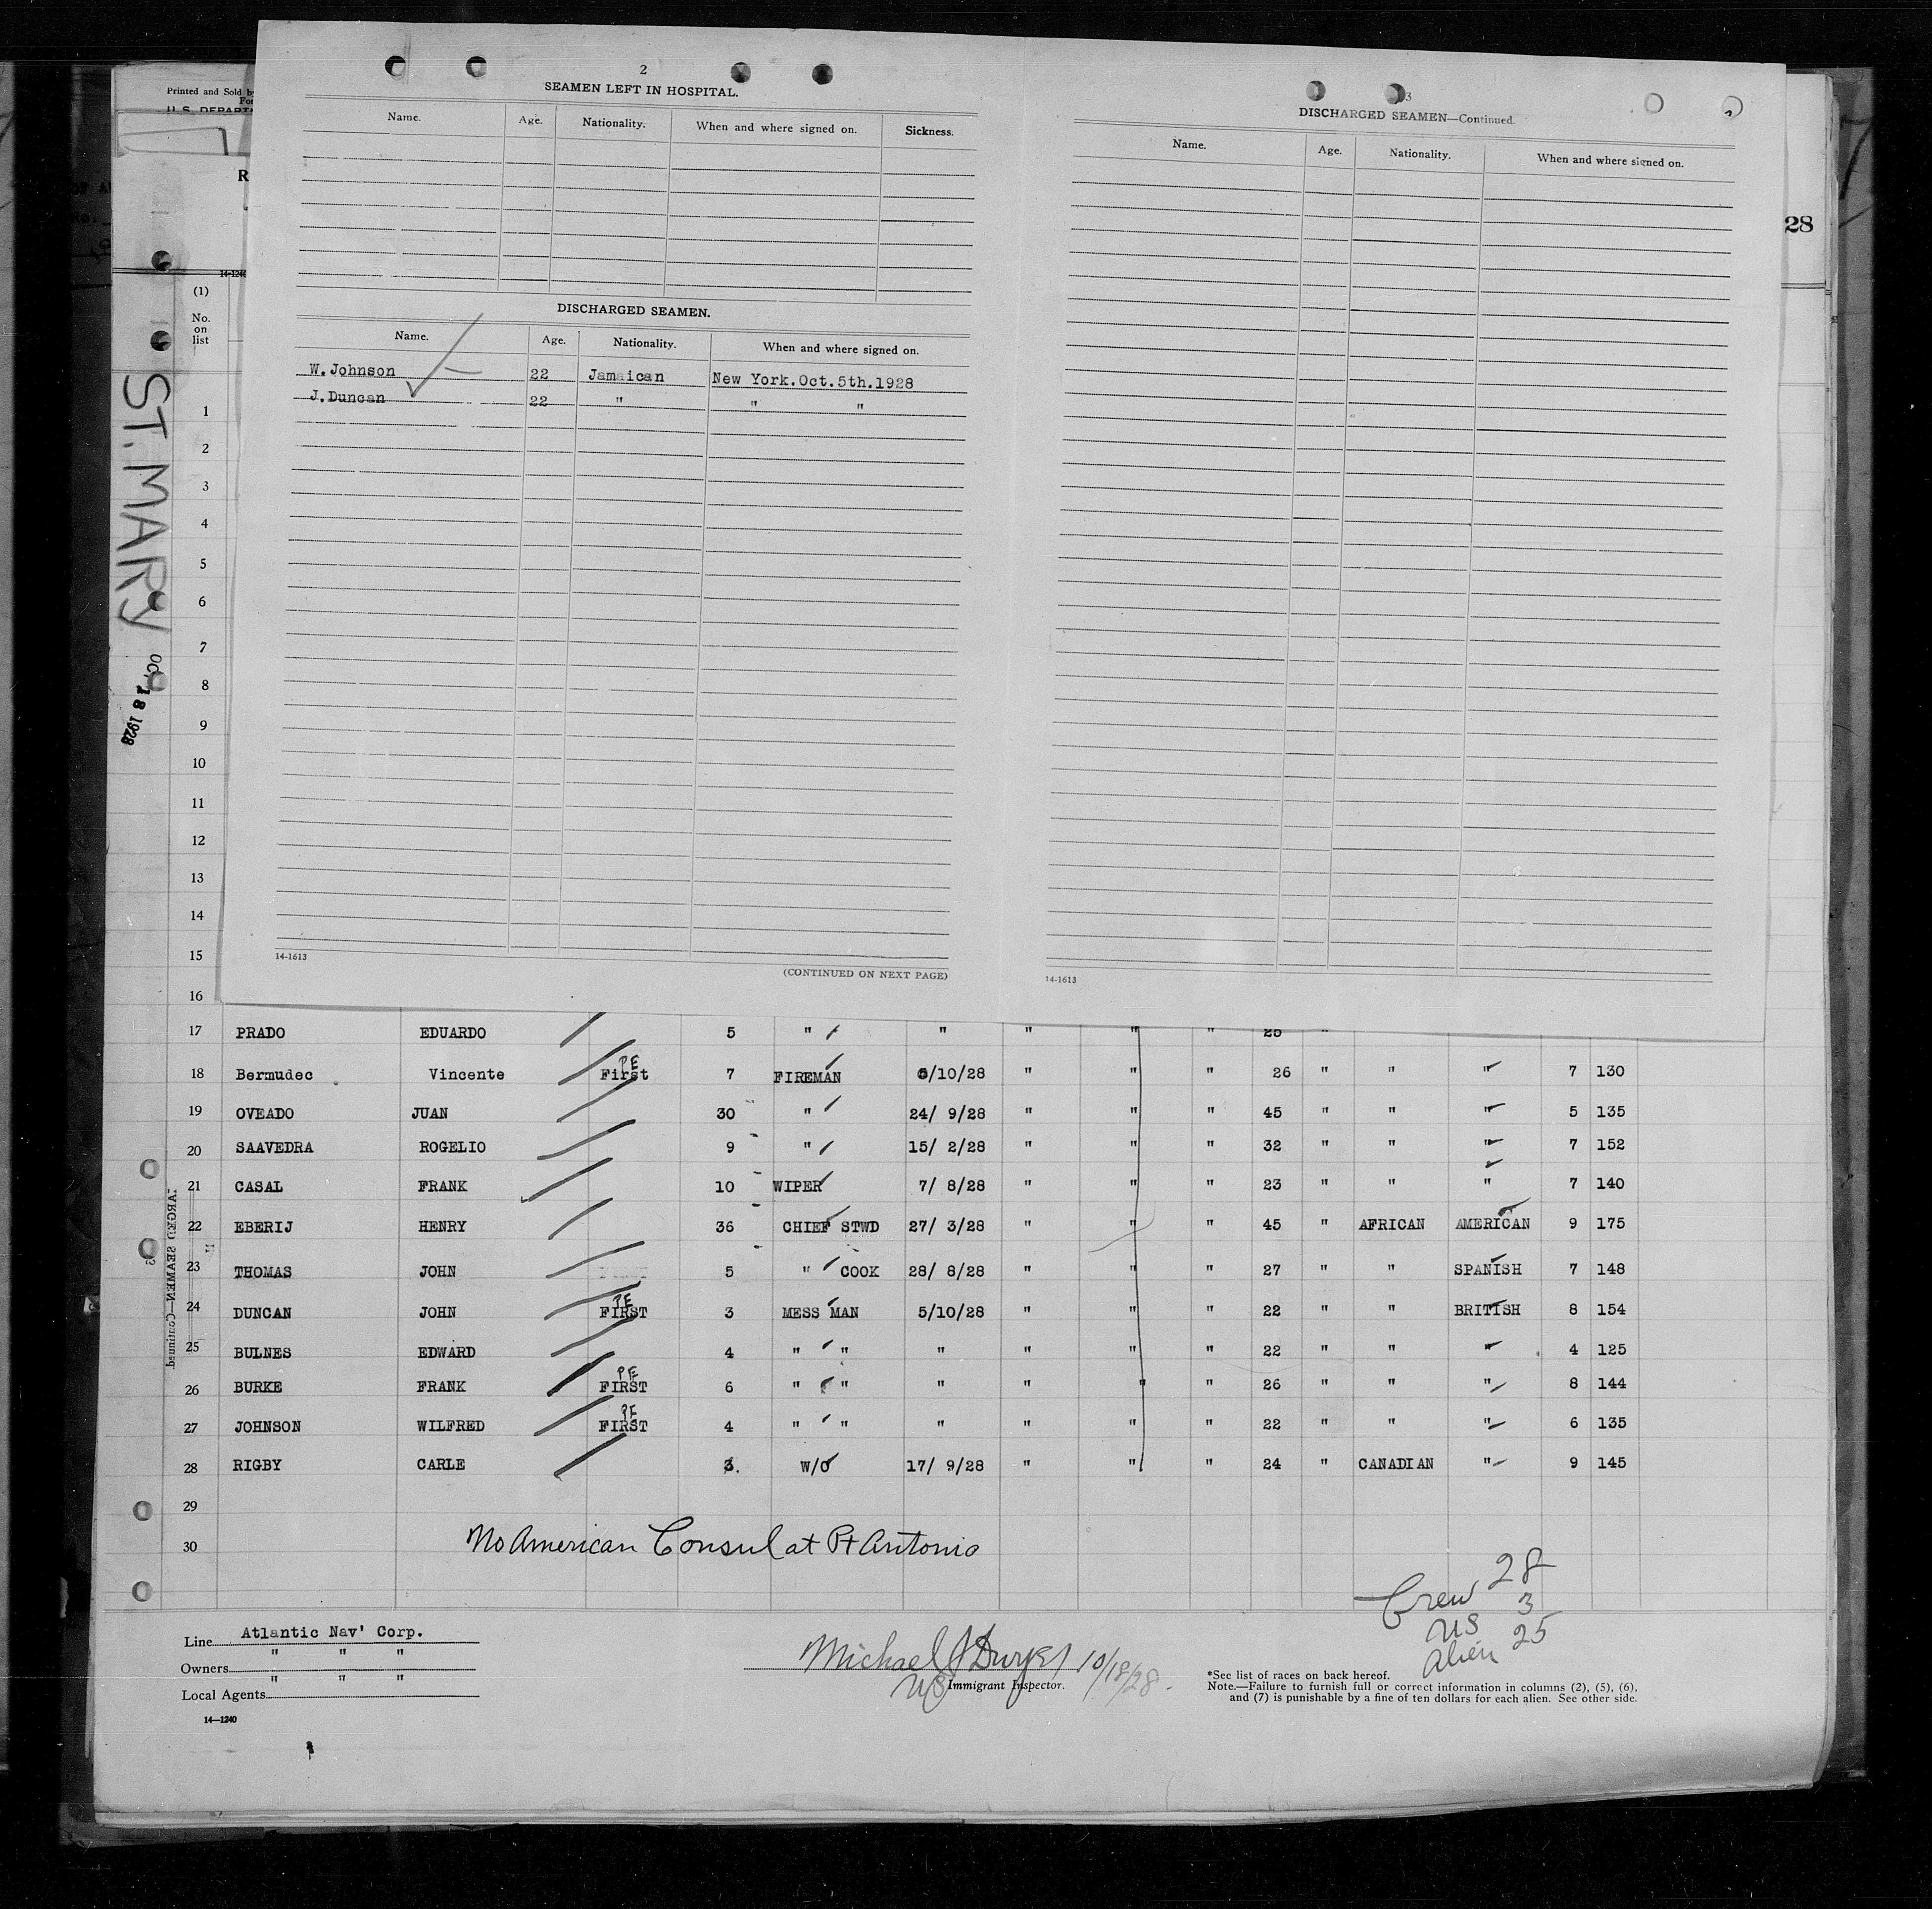 Printed and Sold by
For
U. S. DEPART
R
28
14-1240
2
SEAMEN LEFT IN HOSPITAL.
Name. Age. Nationality. When and where signed on. Sickness.
DISCHARGED SEAMEN.
Name. Age. Nationality. When and where signed on.
W. Johnson 22 Jamaican New York. Oct. 5th. 1928
J. Duncan 22 " " "
14-1613
(CONTINUED ON NEXT PAGE)
3
DISCHARGED SEAMEN—Continued.
Name. Age. Nationality. When and where signed on.
14-1613
ST. MARY
OCT 18 1928
(1)
No.
on
list
1
2
3
4
5
6
7
8
9
10
11
12
13
14
15
16
17 PRADO EDUARDO 5 " " " " " 25 "
18 Bermudec Vincente PE First 7 FIREMAN 5/10/28 " " " 26 " " " 7 130
19 OVEADO JUAN 30 " 24/ 9/28 " " " 45 " " " 5 135
20 SAAVEDRA ROGELIO 9 " 15/ 2/28 " " " 32 " " " 7 152
21 CASAL FRANK 10 WIPER 7/ 8/28 " " " 23 " " " 7 140
22 EBERIJ HENRY 36 CHIEF STWD 27/ 3/28 " " " 45 " AFRICAN AMERICAN 9 175
23 THOMAS JOHN 5 " COOK 28/ 8/28 " " " 27 " " SPANISH 7 148
24 DUNCAN JOHN PE FIRST 3 MESS MAN 5/10/28 " " " 22 " " BRITISH 8 154
25 BULNES EDWARD 4 " " " " " " 22 " " " 4 125
26 BURKE FRANK PE FIRST 6 " " " " " " 26 " " " 8 144
27 JOHNSON WILFRED PE FIRST 4 " " " " " " 22 " " " 6 135
28 RIGBY CARLE 3. W/O 17/ 9/28 " " " 24 " CANADIAN " 9 145
29
30 No American Consul at Pt Antonio
ARGED SEAMEN—Continued.
Crew 28
US 3
Alien 25
Line Atlantic Nav' Corp.
Owners " " "
Local Agents " " "
14—1240
Michael J Dwyer 10/18/28.
US Immigrant Inspector.
*See list of races on back hereof.
Note.—Failure to furnish full or correct information in columns (2), (5), (6),
and (7) is punishable by a fine of ten dollars for each alien. See other side.